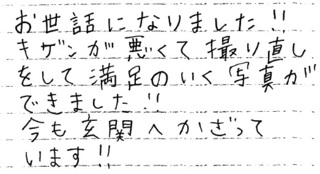 お世話になりました!!
キゲンが悪くて撮り直し
をして満足のいく写真が
できました!!
今も玄関へかざって
います!!